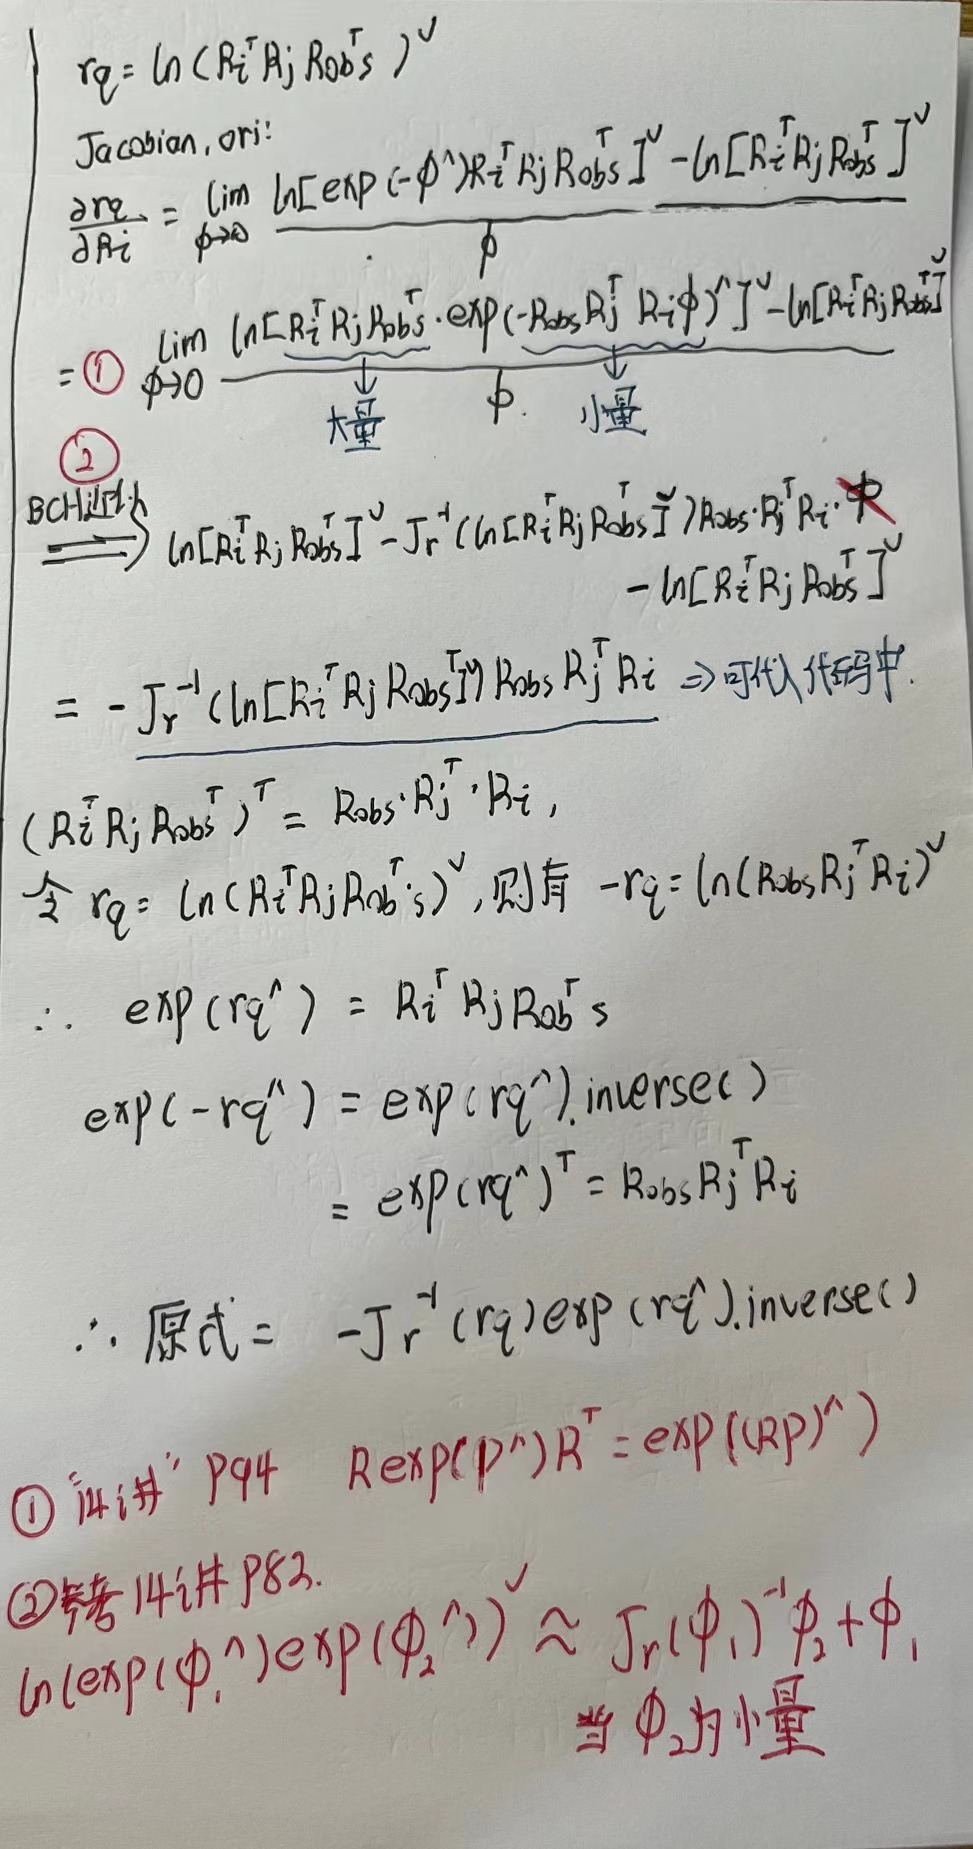 rq = ln(Ri^T Rj Robs^T)^∨
Jacobian, ori:
∂rq/∂Ri = lim ϕ→0 (ln[exp(-ϕ^)Ri^T Rj Robs^T]^∨ - ln[Ri^T Rj Robs^T]^∨) / ϕ
= ① lim ϕ→0 (ln[Ri^T Rj Robs^T · exp(-Robs Rj^T Ri ϕ)^]^∨ - ln[Ri^T Rj Robs^T]^∨) / ϕ.
大量 小量
②
BCH近似
⟹ ln[Ri^T Rj Robs^T]^∨ - Jr^-1(ln[Ri^T Rj Robs^T]^∨)Robs·Rj^T Ri·ϕ
- ln[Ri^T Rj Robs^T]^∨
= - Jr^-1(ln[Ri^T Rj Robs^T]^∨) Robs Rj^T Ri ⇒可代入代码中.
(Ri^T Rj Robs^T)^T = Robs·Rj^T·Ri,
令 rq = ln(Ri^T Rj Robs^T)^∨, 则有 -rq = ln(Robs Rj^T Ri)^∨
∴ exp(rq^) = Ri^T Rj Robs^T
exp(-rq^) = exp(rq^).inverse()
= exp(rq^)^T = Robs Rj^T Ri
∴ 原式 = -Jr^-1(rq)exp(rq^).inverse()
① "14讲" P94 R exp(p^)R^T = exp((Rp)^)
②参考14讲P82.
ln(exp(ϕ1^)exp(ϕ2^))^∨ ≈ Jr(ϕ1)^-1 ϕ2 + ϕ1
当 ϕ2为小量